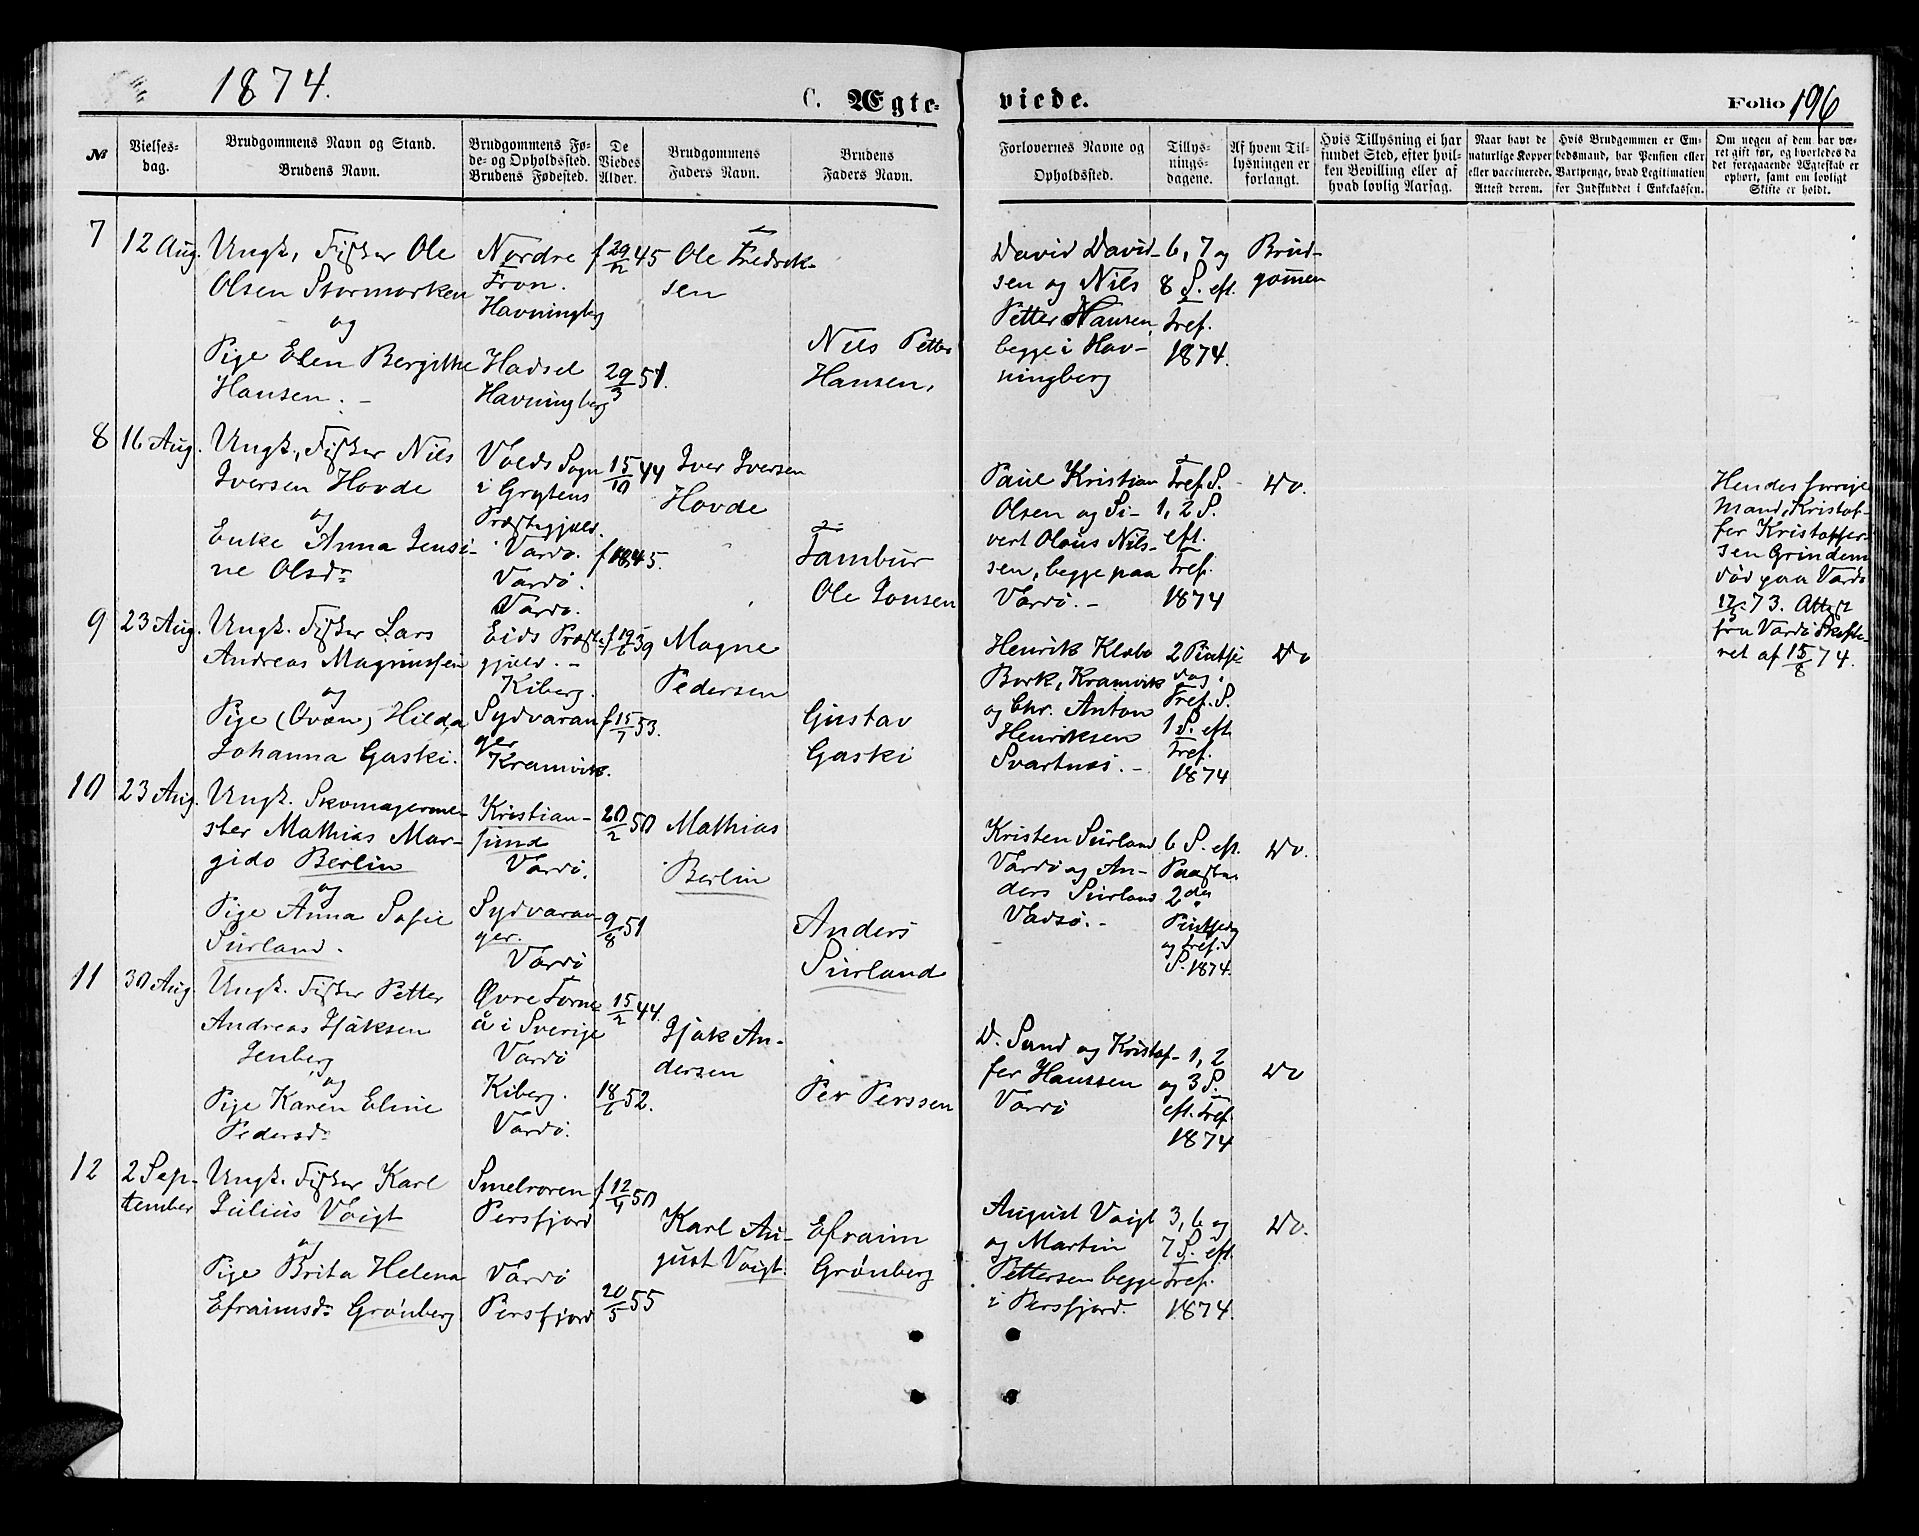 1874.
C. Ægteviede.
Folio 196
№
Vielses-
dag.
Brudgommens Navn og Stand.
Brudens Navn.
Brudgommens Fø-
de- og Opholdssted.
Brudens Fødested.
De
Viedes
Alder.
Brudgommens
Faders Navn.
Brudens
Faders Navn.
Forlovernes Navne og
Opholdssted.
Tillys-
nings-
dagene.
Af hvem Til-
lysningen er
forlangt.
Hvis Tillysning ei har
fundet Sted, efter hvil-
ken Bevilling eller af
hvad lovlig Aarsag.
Naar havt de
naturlige Kopper
eller vaccinerede.
Attest derom.
Hvis Brudgommen er Em-
bedsmand, har Pension eller
Vartpenge, hvad Legitimation
for Indskuddet i Enkekassen.
Om nogen af dem har væ-
ret gift før, og hvorledes da
det foregaaende Ægteskab er
ophørt, samt om lovligt
Skifte er holdt.
7
12 Aug.
Ungk. Fisker Ole
Olsen Stormorken
og
Pige Elen Bergitthe
Hansen. –
Nordre
Fron.
Havningberg
Hadsel
Havningberg
f 29/12 45
29/3 51.
Ole Fredrik-
sen
Nils Petter
Hansen.
David David-
sen og Nils
Petter Hansen,
begge i Hav-
ningberg
6, 7 og
8 S. eft.
Tref.
1874.
Brud-
gommen
8
16 Aug.
Ungk., Fisker Nils
Iversen Hovde
og
Enke Anna Jensi-
ne Olsdr
Volds Sogn
i Grytens
Præstegjæld.
Vardø.
Vardø.
Vardø.
15/10 44
f 1845.
Iver Iversen
Hovde
Tambur
Ole Jonsen
Paul Kristian
Olsen og Si-
vert Olaus Nils-
sen, begge paa
Vardø. –
Tref. S.
1, 2 S.
eft.
Tref.
1874
Do.
Hendes forrige
Mand, Kristof-
fer Kristoffer-
sen Grindem
død paa Vardø
73. Attest
fra Vardø Skifte-
ret af 15/8 74.
9
23 Aug.
Ungk. Fisker Lars
Andreas Magnussen
og
Pige (Qvæn) Hilda
Johanna Gaski.
Eids Præste-
gjæld. –
Kiberg.
Sydvaran
ger
Kramvik.
f 19/6 39
f 15/7 53.
Magne
Pedersen
Gustav
Gaski
Henrik Klæbo
Bork, Kramvik
og Chr. Anton
Henriksen
Svartnæs. –
2 Pintse
dag,
Tref. S.
1 S. eft
Tref.
1874
Do
10
23 Aug.
Ungk. Skomagerme-
ster Mathias Mar-
gido Berlin
og
Pige Anna Sofie
Surland.
Kristian-
sund
Vardø.
Sydvaran-
ger.
Vardø
20/2 50
9/8 51
Mathias
Berlin
Anders
Surland
Kristen Surland
Vardø og An-
ders Surland
Vadsø. –
6 S. eft.
Paaske
2den
Pintsedag
og Tref.
S. 1874.
Do.
11
30 Aug
Ungk. Fisker Petter
Andreas Isaksen
Jenberg
og
Pige Karen Eline
Pedersdr
Øvre Torne
å i Sverige
Vardø
Kiberg.
Vardø.
15/2 44.
18/6 52.
Isak An-
dersen
Per Perssen
D. Sund og Kristof-
fer Hanssen
Vardø
1, 2
og 3 S.
eft. Tref.
1874
Do
12
2 Sep-
tember
Ungk. Fisker Karl
Julius Voigt
og
Pige Brita Helena
Efraimsdr Grønberg
Smelroren
Persfjord
Vardø
Persfjord
f 12/4 50
20/5 55
Karl Au-
gust Voigt.
Efraim
Grønberg
August Voigt
og Martin
Pettersen begge
i Persfjord.
3, 6 og
7 S. eft.
Tref.
1874.
Do.